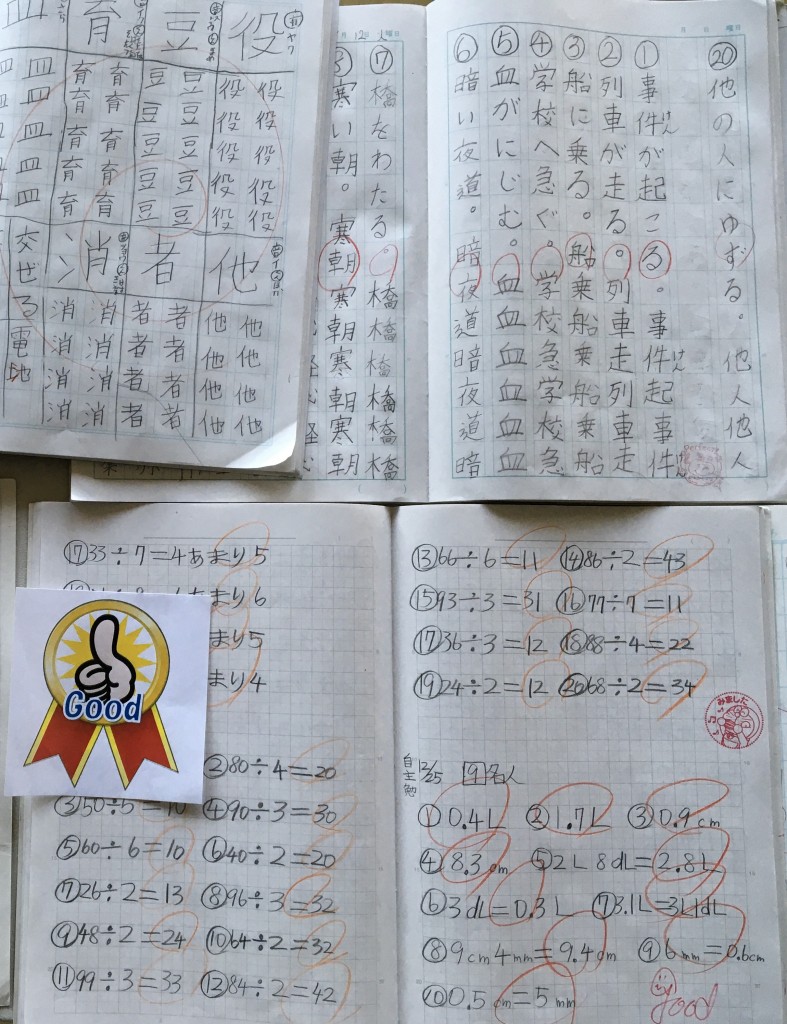 役
豆
育
皿
役役
役役
役役
役役
役役
豆豆
豆豆
豆豆
豆豆
豆豆
育育
育育
育育
育育
育育
皿
皿
皿
皿
皿
他
者
消
他他
他他
他他
他他
者者
者者
者者
者者
消消
消消
消消
消消
交ぜる電池
⑳他の人にゆずる。他人他人
①事件が起こる。事件起事件
けん
けん
けん
②列車が走る。列車走列車走
③船に乗る。船乗船乗船乗船
④学校へ急ぐ。学校急学校急
⑤血がにじむ。血血血血血血
⑥暗い夜道。暗夜道暗夜道暗
月12日火曜日
月 日 曜日
⑦橋をわたる。橋橋橋橋橋橋
⑧寒い朝。寒朝寒朝寒朝寒朝
⑰33÷7=4あまり5
あまり6
まり5
まり4
②80÷4=20
③50÷5=10 ④90÷3=30
⑤60÷6=10 ⑥40÷2=20
⑦26÷2=13 ⑧96÷3=32
⑨48÷2=24 ⑩64÷2=32
⑪99÷3=33 ⑫84÷2=42
Good
⑬66÷6=11 ⑭86÷2=43
⑮93÷3=31 ⑯77÷7=11
⑰36÷3=12 ⑱88÷4=22
⑲24÷2=12 ⑳68÷2=34
みました
自主勉 12/25 9 名人
①0.4L ②1.7L ③0.9cm
④8.3cm ⑤2L8dL=2.8L
⑥3dL=0.3L ⑦3.1L=3L1dL
⑧9cm4mm=9.4cm ⑨6mm=0.6cm
⑩0.5cm=5mm
good